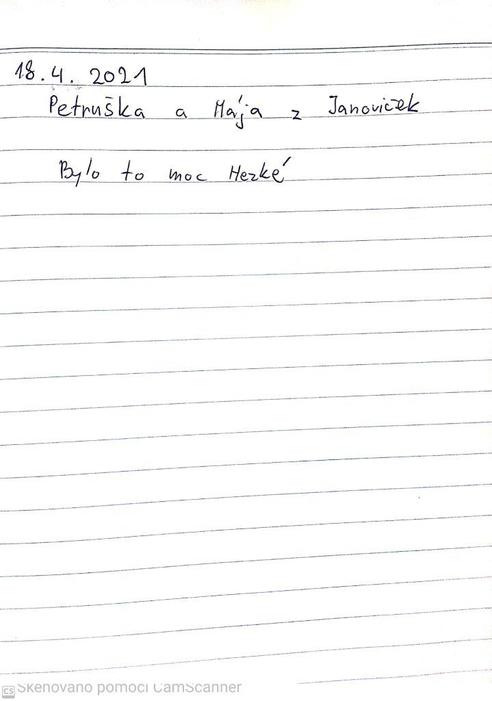 18.4.2021
Petruška a Mája z Janoviček
Bylo to moc Hezké
CS Skenováno pomocí CamScanner